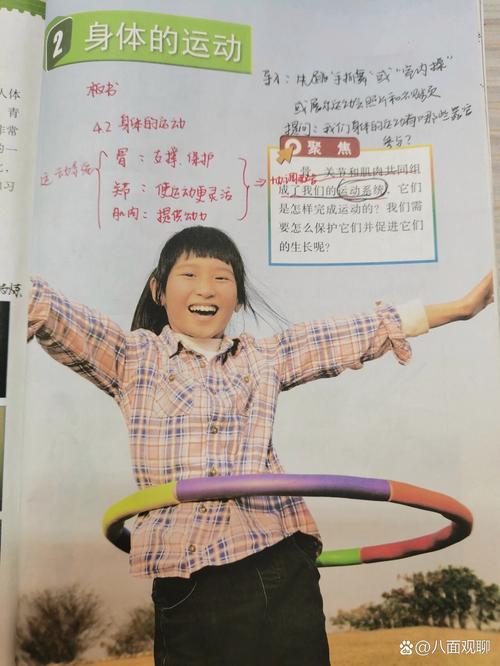 2 身体的运动
板书
导入:先做"手指操"或"室内操"
或展示运动会照片和视频
4.2 身体的运动
提问:我们身体的运动有哪些器官
参与?
运动系统
骨:支撑 保护
关节:便运动更灵活
肌肉:提供动力
聚焦
骨、关节和肌肉共同组
成了我们的运动系统,它们
是怎样完成运动的?我们需
要怎么保护它们并促进它们
的生长呢?
人体
青
非常
的一
习
@八面观聊